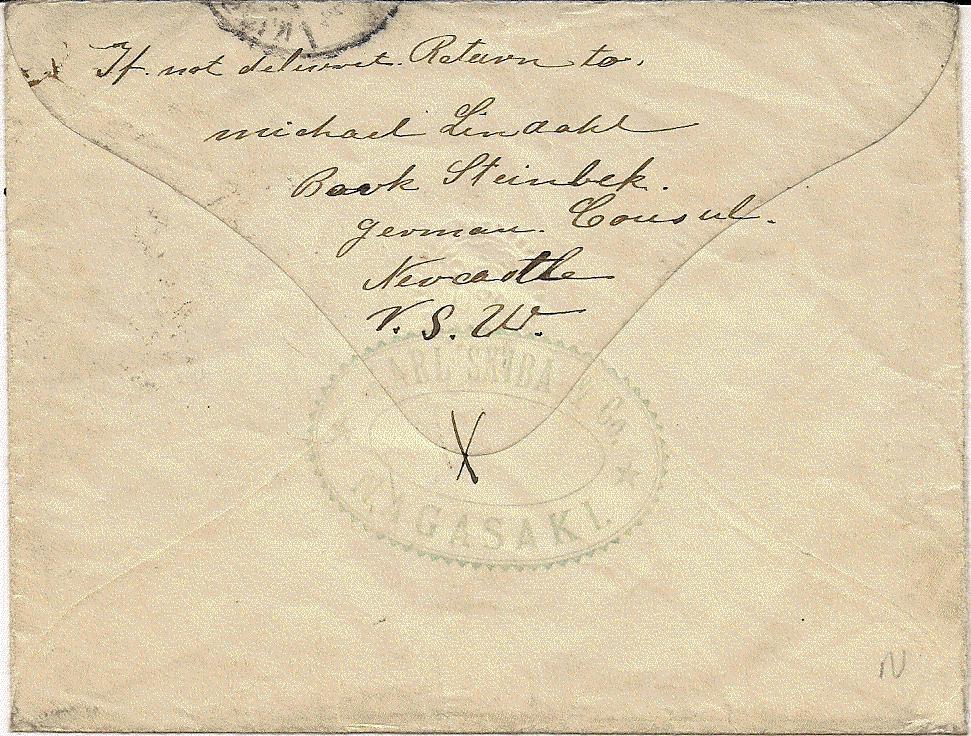 If. not deliveret. Return to.
michael Lindahl
Bark Steinbek.
german. Consul.
Newcastle
N. S. W.
& Co.
NAGASAKI.
X
N